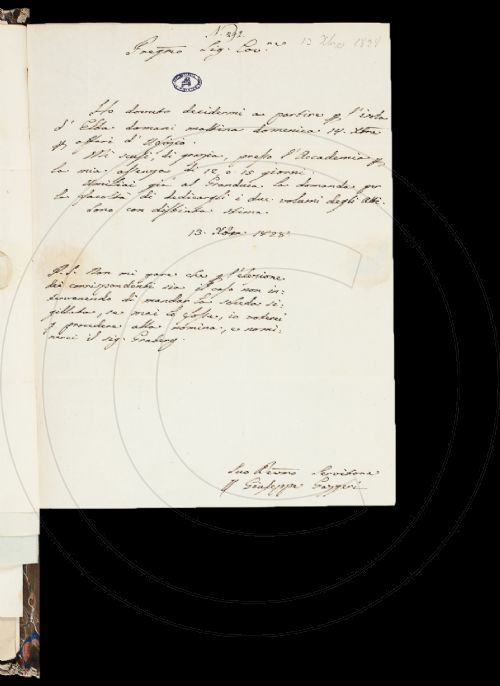 N. 292.
Pregmo Sig. Cav.re 13 Xbre 1828
Ho dovuto decidermi a partire p l'isola
d'Elba domani mattina domenica 14. Xbre
p affari d'Uffizio.
Mi scusi, di grazia, presso l'Accademia p
la mia assenza di 12 o 15 giorni.
Umiliai già al Granduca la domanda per
la facoltà di dedicargli i due volumi degli Atti
Sono con distinta stima
13. Xbre 1828
P.S. Non mi pare che p l'elezione
dei corrispondenti sia il caso non in=
tervenendo di mandar la scheda si=
gillata, se mai lo fosse, io voterei
p procedere alla nomina, e nomi=
nerei il sig. Graberg.
Suo Servitore
Giuseppe Gazzeri